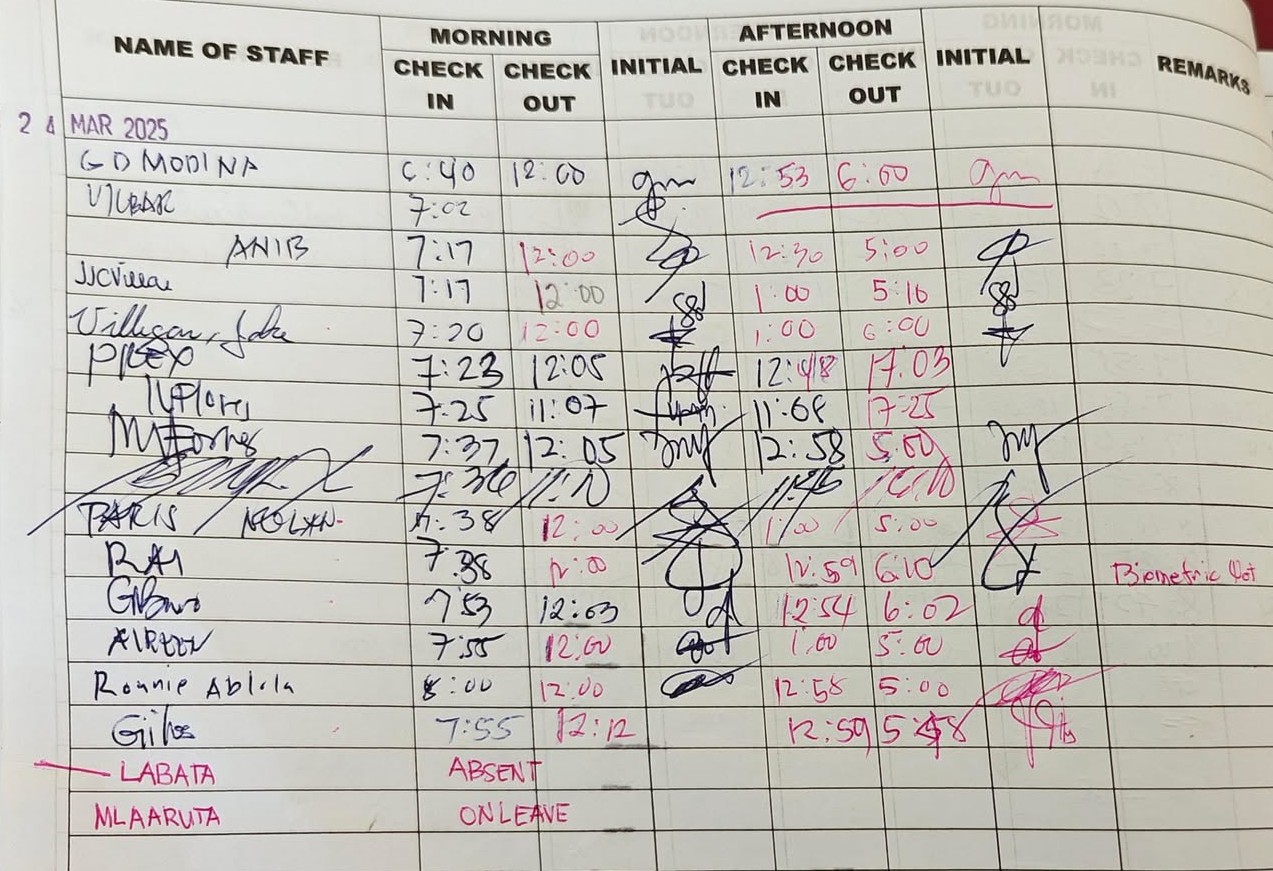 NAME OF STAFF MORNING AFTERNOON
CHECK IN CHECK OUT INITIAL CHECK IN CHECK OUT INITIAL REMARKS
24 MAR 2025
GD MODINA 6:40 12:00 gm 12:53 6:00 gm
VILBAR 7:02
ANIB 7:17 12:00 12:30 5:00
JJCVillar 7:17 12:00 1:00 5:16
Villegan, Jake 7:20 12:00 1:00 6:00
7:23 12:05 12:48 17.03
7:25 11:07 11:08 17:25
7:37 12:05 my 12:58 5:00 my
7:36 11:10 11:45
PARIS 7:38 12:00 1:00 5:00
RAI 7:38 12:00 12:59 6:10 Biometric Not
7:53 12:03 12:54 6:02
AIREEN 7:55 12:00 1:00 5:00
Ronnie Ablola 8:00 12:00 12:58 5:00
7:55 12:12 12:59 5:58
LABATA ABSENT
MLAARUTA ON LEAVE